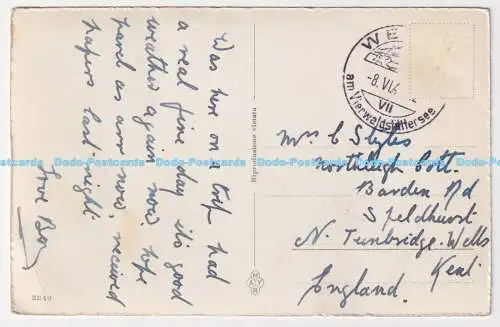 Was here on a trip had
a real fine day it's good
weather again now, hope
parcel as arr now, received
papers last night.
Love
2040
Riproduzione vietata
MAYR
WE
-8. VI.
VII
am Vierwaldstättersee
Mrs C Styles
Northleigh Cott.
Barden Rd
Speldhurst
N. Tunbridge. Wells
Kent
England.
Dodo-Postcards Dodo-Postcards Dodo-Postcards Dodo-Postcards Dodo-Postcards